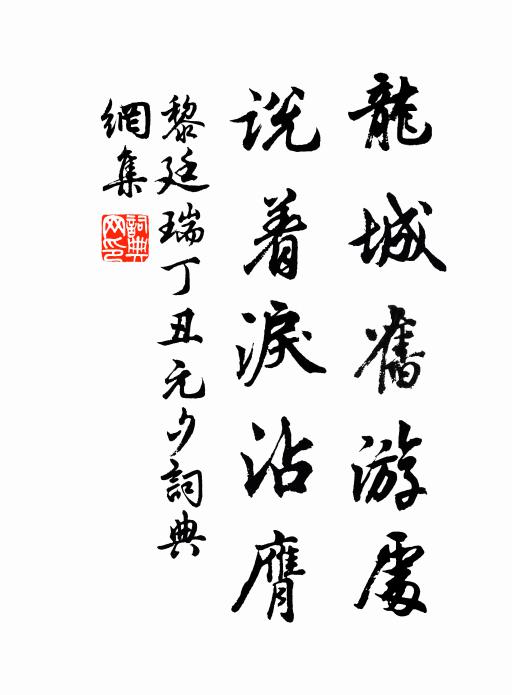 龍城舊游處
説着淚沾膺
黎廷瑞丁丑元夕詞典
網集
詞典
网印